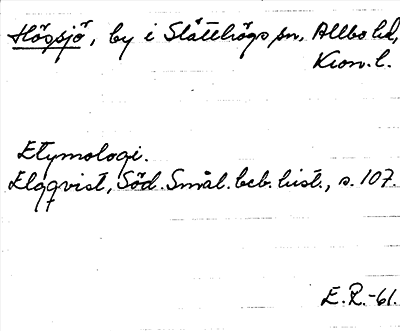 Högsjö, by i Slätthögs sn, Allbo hd,
Kron. l.
Etymologi.
Elqvist, Söd. Smål. beb. hist., s. 107.
E. R. -61.